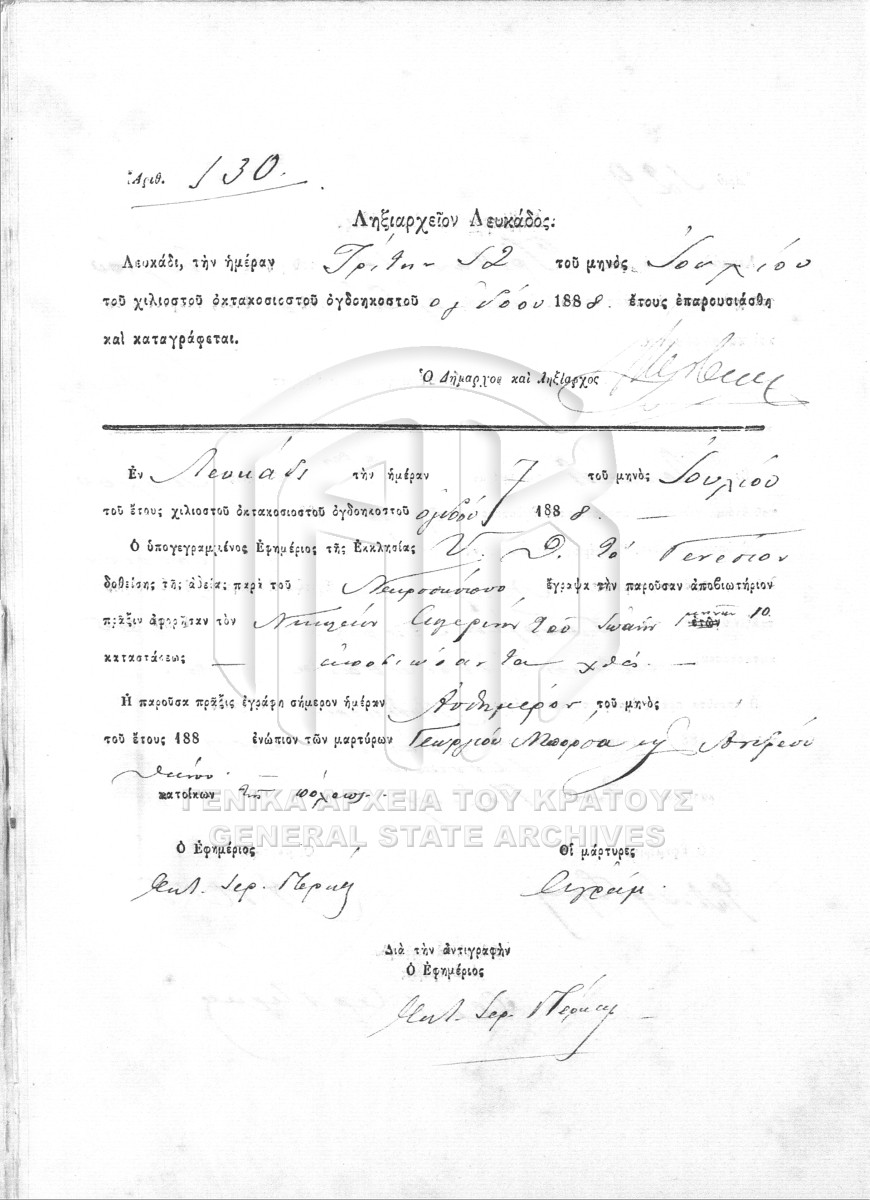 Ἀριθ. 130.
Ληξιαρχεῖον Λευκάδος.
Λευκάδι, τὴν ἡμέραν Τρίτην 12 τοῦ μηνὸς Ἰουλίου
τοῦ χιλιοστοῦ ὀκτακοσιοστοῦ ὀγδοηκοστοῦ ὀγδόου 1888. ἔτους ἐπαρουσιάσθη
καὶ καταγράφεται.
Ὁ Δήμαρχος καὶ Ληξίαρχος
Ἐν Λευκάδι τὴν ἡμέραν 7 τοῦ μηνὸς Ἰουλίου
τοῦ ἔτους χιλιοστοῦ ὀκτακοσιοστοῦ ὀγδοηκοστοῦ ὀγδόου 1888.
Ὁ ὑπογεγραμμένος Ἐφημέριος τῆς Ἐκκλησίας Υ. Θ. τὸ Γενέσιον
δοθείσης τῆς ἀδείας παρὰ τοῦ ἔγραψα τὴν παροῦσαν ἀποβιωτήριον
πρᾶξιν ἀφορῶσαν τὸν τοῦ Ἰωάννου μηνῶν ἐτῶν 10
καταστάσεως — ἀποβιώσαντα χθές. —
Ἡ παροῦσα πρᾶξις ἐγράφη σήμερον ἡμέραν Αὐθημερὸν τοῦ μηνὸς
τοῦ ἔτους 188 ἐνώπιον τῶν μαρτύρων Γεωργίου Μπόρσα καὶ Ἀνδρέου
κατοίκων τῆς πόλεως.
ΓΕΝΙΚΑ ΑΡΧΕΙΑ ΤΟΥ ΚΡΑΤΟΥΣ
GENERAL STATE ARCHIVES
Ὁ Ἐφημέριος
Οἱ μάρτυρες
Διὰ τὴν ἀντιγραφὴν
Ὁ Ἐφημέριος